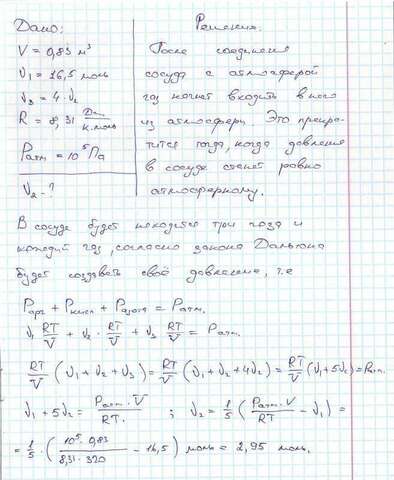 Дано:
V = 0,83 м³
ν₁ = 16,5 моль
ν₃ = 4·ν₂
R = 8,31 Дж/К·моль
Pатм = 10⁵ Па
ν₂ - ?
Решение:
После соединения
сосуда с атмосферой
газ начнет входить в него
из атмосферы. Это прекра-
тится тогда, когда давление
в сосуде станет равно
атмосферному.
В сосуде будет находится три газа и
каждый газ, согласно закона Дальтона
будет создавать своё давление, т.е
Pарг + Pкисл + Pазота = Pатм.
ν₁ RT/V + ν₂ · RT/V + ν₃ RT/V = Pатм.
RT/V (ν₁ + ν₂ + ν₃) = RT/V (ν₁ + ν₂ + 4ν₂) = RT/V (ν₁ + 5ν₂) = Pатм.
ν₁ + 5ν₂ = Pатм·V/RT. ; ν₂ = 1/5 (Pатм·V/RT − ν₁) =
= 1/5 · (10⁵ · 0,83/8,31 · 320 − 16,5) моль = 2,95 моль.